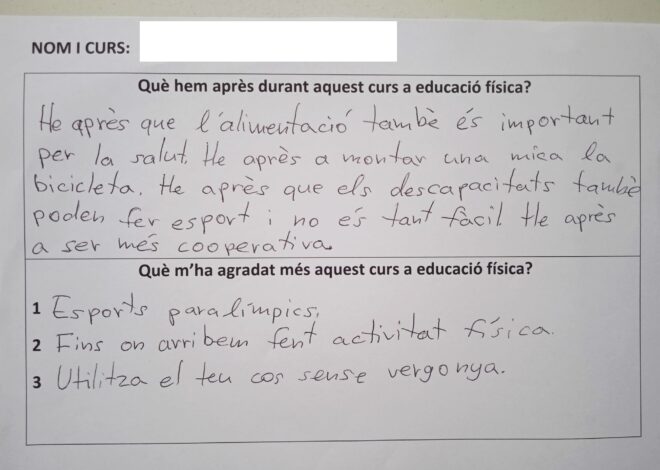 NOM I CURS:
Què hem après durant aquest curs a educació física?
He après que l'alimentació també és important
per la salut. He après a montar una mica la
bicicleta. He après que els descapacitats també
poden fer esport i no és tant fàcil. He après
a ser més cooperativa.
Què m'ha agradat més aquest curs a educació física?
1 Esports paralímpics.
2 Fins on arribem fent activitat física.
3 Utilitza el teu cos sense vergonya.